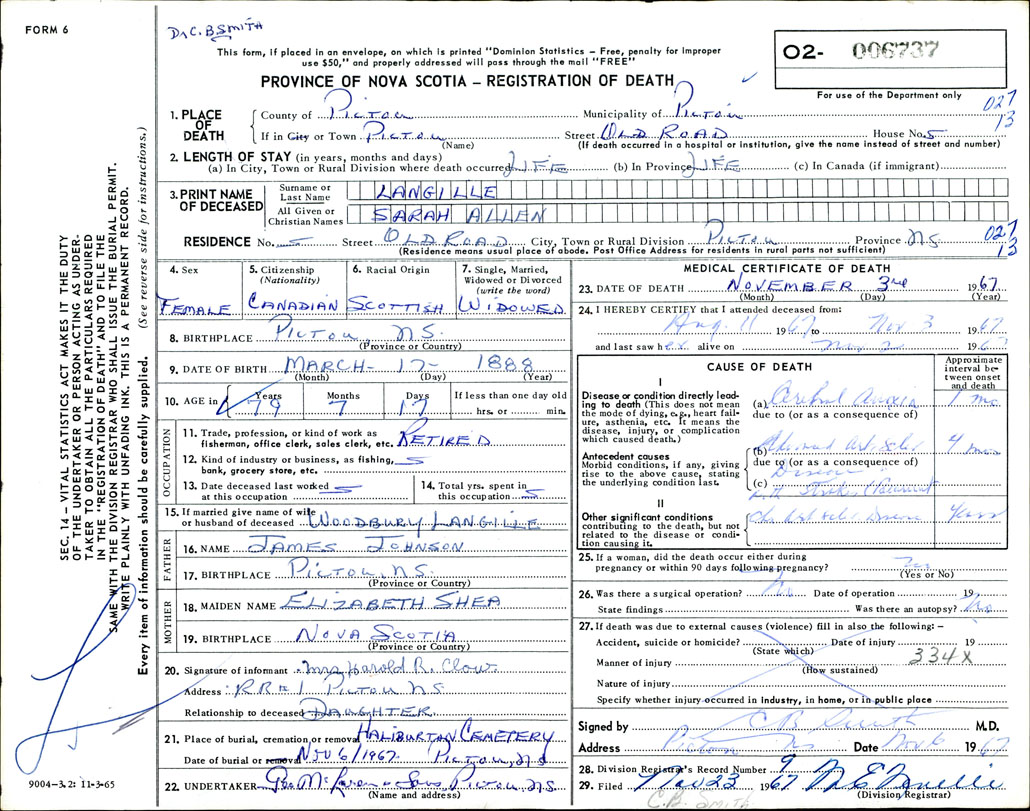 FORM 6
Dr C. B SMITH
This form, if placed in an envelope, on which is printed "Dominion Statistics – Free, penalty for improper
use $50," and properly addressed will pass through the mail "FREE"
PROVINCE OF NOVA SCOTIA – REGISTRATION OF DEATH
O2- 006737
For use of the Department only
027
13
1. PLACE OF DEATH
County of Pictou Municipality of Pictou
If in City or Town Pictou Street OLD ROAD House No. 5
(Name) (If death occurred in a hospital or institution, give the name instead of street and number)
2. LENGTH OF STAY (in years, months and days)
(a) In City, Town or Rural Division where death occurred LIFE (b) In Province LIFE (c) In Canada (if immigrant)
3. PRINT NAME OF DECEASED
Surname or Last Name LANGILLE
All Given or Christian Names SARAH ALLEN
RESIDENCE No. 5 Street OLD ROAD City, Town or Rural Division Pictou Province N.S. 027
(Residence means usual place of abode. Post Office Address for residents in rural parts not sufficient) 13
4. Sex FEMALE
5. Citizenship (Nationality) CANADIAN
6. Racial Origin SCOTTISH
7. Single, Married, Widowed or Divorced (write the word) WIDOWED
8. BIRTHPLACE PICTOU N.S.
(Province or Country)
9. DATE OF BIRTH MARCH - 17 - 1888
(Month) (Day) (Year)
10. AGE in Years 79 Months 7 Days 17 If less than one day old hrs. or min.
OCCUPATION
11. Trade, profession, or kind of work as fisherman, office clerk, sales clerk, etc. RETIRED
12. Kind of industry or business, as fishing, bank, grocery store, etc.
13. Date deceased last worked at this occupation
14. Total yrs. spent in this occupation
15. If married give name of wife or husband of deceased WOODBURY LANGILLE
FATHER
16. NAME JAMES JOHNSON
17. BIRTHPLACE PICTOU, N.S.
(Province or Country)
MOTHER
18. MAIDEN NAME ELIZABETH SHEA
19. BIRTHPLACE NOVA SCOTIA
(Province or Country)
20. Signature of informant Mrs Harold R. Clow
Address R.R #1 PICTOU N.S
Relationship to deceased DAUGHTER
21. Place of burial, cremation or removal HALIBURTON CEMETERY
Date of burial or removal NOV 6/1967. Pictou, N.S
22. UNDERTAKER Geo McLaren & Sons, Pictou, N.S.
(Name and address)
MEDICAL CERTIFICATE OF DEATH
23. DATE OF DEATH NOVEMBER 3rd 1967
(Month) (Day) (Year)
24. I HEREBY CERTIFY that I attended deceased from:
Aug 11 1967 to Nov 3 1967
and last saw her alive on Nov 1967
CAUSE OF DEATH
Approximate interval between onset and death
I
Disease or condition directly leading to death (This does not mean the mode of dying, e.g., heart failure, asthenia, etc. It means the disease, injury, or complication which caused death.)
(a) Cerebral 1 mo
due to (or as a consequence of)
Antecedent causes
Morbid conditions, if any, giving rise to the above cause, stating the underlying condition last.
(b) 4 mos
due to (or as a consequence of)
Disease
(c)
II
Other significant conditions
contributing to the death, but not related to the disease or condition causing it.
Disease Years
25. If a woman, did the death occur either during pregnancy or within 90 days following pregnancy? No
(Yes or No)
26. Was there a surgical operation? No Date of operation 19
State findings Was there an autopsy? No
27. If death was due to external causes (violence) fill in also the following: –
Accident, suicide or homicide? Date of injury 19
(State which)
Manner of injury 334X
(How sustained)
Nature of injury
Specify whether injury occurred in industry, in home, or in public place
Signed by C B Smith M.D.
Address Pictou NS Date Nov 6 1967
28. Division Registrar's Record Number 9
29. Filed Nov 23 1967
(Division Registrar)
C.B. Smith
SEC. 14 – VITAL STATISTICS ACT MAKES IT THE DUTY
OF THE UNDERTAKER OR PERSON ACTING AS UNDER-
TAKER TO OBTAIN ALL THE PARTICULARS REQUIRED
IN THE "REGISTRATION OF DEATH" AND TO FILE THE
SAME WITH THE DIVISION REGISTRAR WHO SHALL ISSUE THE BURIAL PERMIT.
WRITE PLAINLY WITH UNFADING INK. THIS IS A PERMANENT RECORD.
Every item of information should be carefully supplied. (See reverse side for instructions.)
9004–3.2: 11-3-65